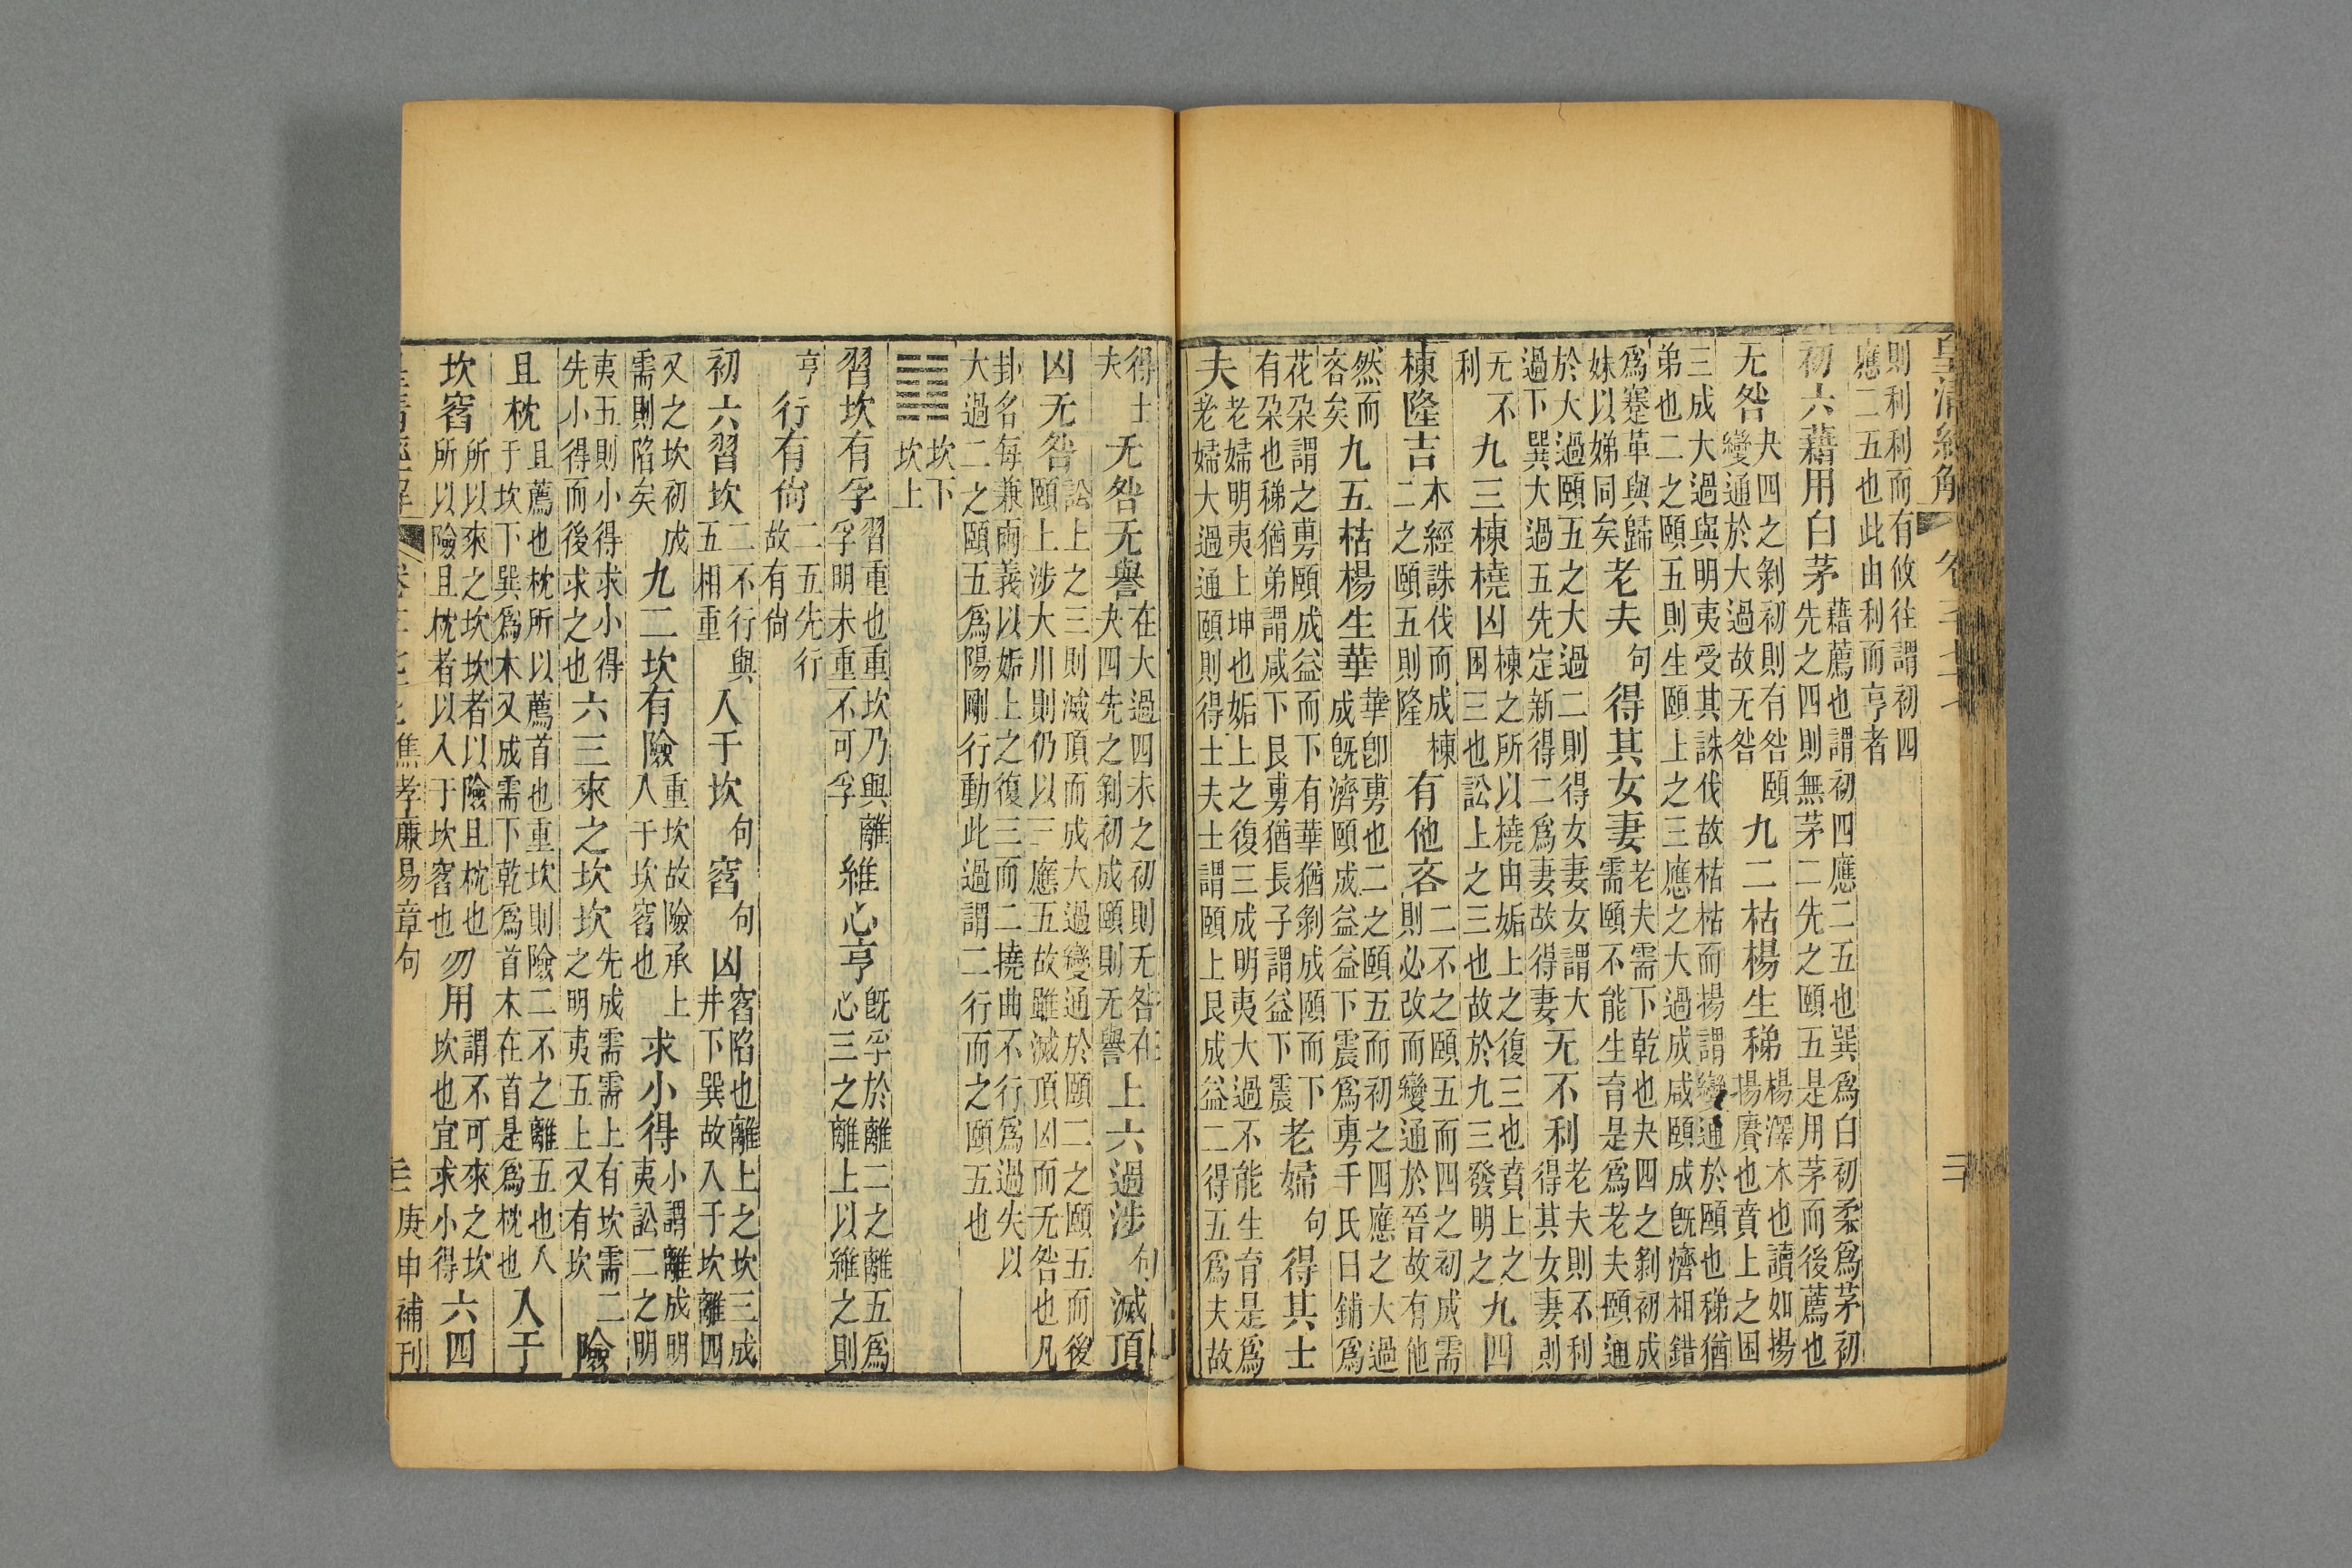 皇清經解 卷一千七十七 三
則利利而有攸往謂初四
應二五也此由利而亨者
初六藉用白茅
藉薦也謂初四應二五也巽爲白初柔爲茅初
先之四則無茅二先之頤五是用茅而後薦也
无咎
夬四之剝初則有咎頤
變通於大過故无咎
九二枯楊生稊
楊澤木也讀如揚
揚賡也賁上之困
三成大過與明夷受其誅伐故枯枯而揚謂變通於頤也稊猶
弟也二之頤五則生頤上之三應之大過成咸頤成旣濟相錯
爲蹇革與歸
妹以娣同矣
老夫句得其女妻
老夫需下乾也夬四之剝初成
需頤不能生育是爲老夫夫頤通
於大過頤五之大過二則得女妻女謂大
過下巽大過五先定新得二爲妻故得妻
无不利
老夫則不利
得其女妻則
无不
利
九三棟橈凶
棟之所以橈由姤上之復三也賁上之
困三也訟上之三也故於九三發明之
九四
棟隆吉
木經誅伐而成棟
二之頤五則隆
有他吝
二不之頤五而四之初成需
則必改而變通於晉故有他
然而
吝矣
九五枯楊生華
華卽旉也二之頤五而初之四應之大過
成旣濟頤成益益下震爲旉千氏曰鋪爲
花朵謂之旉頤成益而下有華猶剝成頤而下
有朵也稊猶弟謂咸下艮旉猶長子謂益下震
老婦句得其士
夫
老婦明夷上坤也姤上之復三成明夷大過不能生育是爲
老婦大過通頤則得士夫士謂頤上艮成益二得五爲夫故
得士
夫
无咎无譽
在大過四未之初則无咎在
夬四先之剝初成頤則无譽
上六過涉句滅頂
凶无咎
訟上之三則滅頂而成大過變通於頤二之頤五而後
頤上涉大川則仍以三應五故雖滅頂凶而无咎也凡
卦名每兼兩義以姤上之復三而二撓曲不行爲過失以
大過二之頤五爲陽剛行動此過謂二行而之頤五也
䷜
坎下
坎上
習坎有孚
習重也重坎乃與離
孚明未重不可孚
維心亨
旣孚於離二之離五爲
心三之離上以維之則
亨
行有尙
二五先行
故有尙
初六習坎
二不行與
五相重
入于坎句窞句凶
窞陷也離上之坎三成
井下巽故入于坎離四
又之坎初成
需則陷矣
九二坎有險
重坎故險承上
入于坎窞也
求小得
小謂離成明
夷訟二之明
夷五則小得求小得
先小得而後求之也
六三來之坎坎
先成需需上有坎需二
之明夷五上又有坎
險
且枕
且薦也枕所以薦首也重坎則險二不之離五也人
于坎下巽爲木又成需下乾爲首木在首是爲枕也
入于
坎窞
所以來之坎坎者以險且枕也
所以險且枕者以入于坎窞也
勿用
謂不可來之坎
坎也宜求小得
六四
焦孝廉易章句 庚申補刊